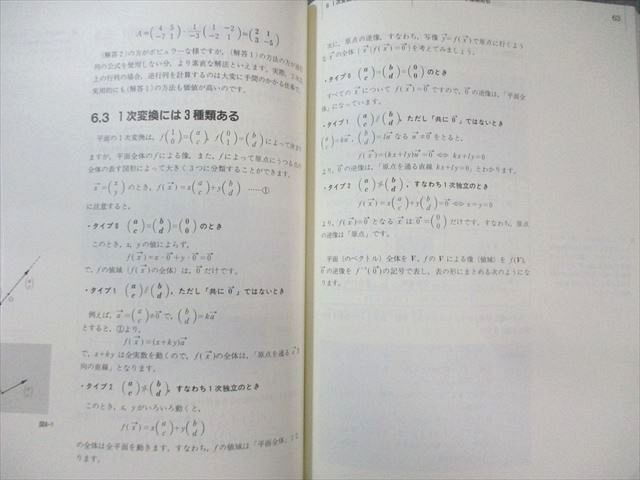 A=(4 5 / -7 1)・1/-3(1 -2 / -2 1)=(2 1 / 3 -5)
(解答2)の方がポピュラーな様ですが,(解答1)の方法の方が逆行
列の公式を使用しない分,より素直な解法といえます。実際,
上の行列の場合,逆行列を計算するのは大変に手間のかかる仕事で,
実用的にも(解答1)の方法も価値が高いのです。
6.3 1次変換には3種類ある
平面の1次変換は,f(1 / 0)=(a / c), f(0 / 1)=(b / d)によって決
ますが,平面全体の f による像,また,f によって原点にうつるもの
全体の表す図形によって大きく3つに分類することができます。
x⃗=(x / y) のとき,f(x⃗)=x(a / c)+y(b / d) ……①
に注意すると,
・タイプ0 (a / c)=(b / d)=(0 / 0) のとき
このとき,x, y の値によらず,
f(x⃗)=x・0⃗+y・0⃗=0⃗
で,f の値域(f(x⃗)の全体)は,0⃗ だけです。
・タイプ1 (a / c)∥(b / d),ただし「共に 0⃗」ではないとき
例えば,a⃗=(a / c)≠0⃗ で,(b / d)=ka⃗
とすると,①より,
f(x⃗)=(x+ky)a⃗
で,x+ky は全実数を動くので,f(x⃗)の全体は,「原点を通る
向の直線」となります。
・タイプ2 (a / c)∦(b / d),すなわち1次独立のとき
このとき,x, y がいろいろ動くと,
f(x⃗)=x(a / c)+y(b / d)
の全体は全平面を動きます。すなわち,f の値域は「平面全体」とな
ります。
図6-1
O
6 1次変
63
次に,原点の逆像,すなわち,写像 y⃗=f(x⃗) で原点に行くよう
な x⃗ の全体 {x⃗|f(x⃗)=0⃗} を考えてみましょう。
・タイプ0 (a / c)=(b / d)=(0 / 0) のとき
すべての x⃗ について f(x⃗)=0⃗ ですので,0⃗ の逆像は,「平面全
体」になっています。
・タイプ1 (a / c)∥(b / d),ただし「共に 0⃗」ではないとき
(a / c)=ka⃗,(b / d)=la⃗ なる a⃗≠0⃗ をとると,
f(x⃗)=(kx+ly)a⃗=0⃗ ⇔ kx+ly=0
より,0⃗ の逆像は,「原点を通る直線 kx+ly=0」とわかります。
・タイプ2 (a / c)∦(b / d),すなわち1次独立のとき
f(x⃗)=x(a / c)+y(b / d)=0⃗ ⇔ x=y=0
より,f(x⃗)=0⃗ となる x⃗ は 0⃗=(0 / 0) だけです。すなわち,原点
の逆像は「原点」です。
平面(のベクトル)全体を V,f の V による像(値域)を f(V),
0⃗ の逆像を f⁻¹(0⃗) の記号で表し,表の形にまとめると次のようにな
ります。